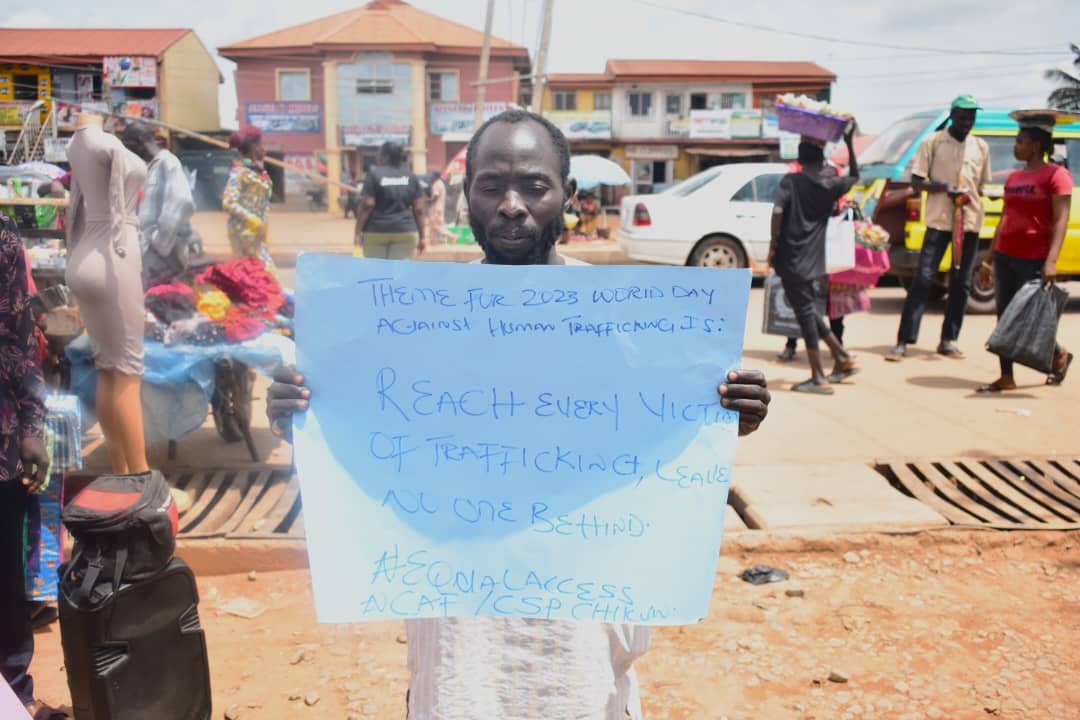 THEME FOR 2023 WORLD DAY
AGAINST HUMAN TRAFFICKING IS:
REACH EVERY VICTIM
OF TRAFFICKING, LEAVE
NO ONE BEHIND.
#EQUALACCESS
NCAT/CSP CHIKUN.